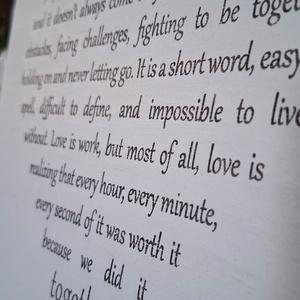 and it doesn't always come
obstacles, facing challenges, fighting to be toget
holding on and never letting go. It is a short word, easy
spell, difficult to define, and impossible to live
without. Love is work, but most of all, love is
realizing that every hour, every minute,
every second of it was worth it
because we did it
togeth